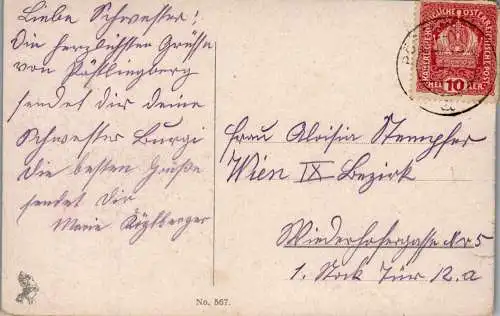 Liebe Schwester!
Die herzlichsten Grüsse
von Pöstlingberg
sendet dir deine
Schwester Burgi
die besten Grüße
sendet Dir
Marie Köglberger
KAISERLICHE KÖNIGLICHE ÖSTERREICHISCHE POST
HELLER 10 HELLER
Frau Aloisia Stempfer
Wien IX Bezirk
Wiederhofergasse Nr 5
1. Stock Tür 12.a
No. 567.